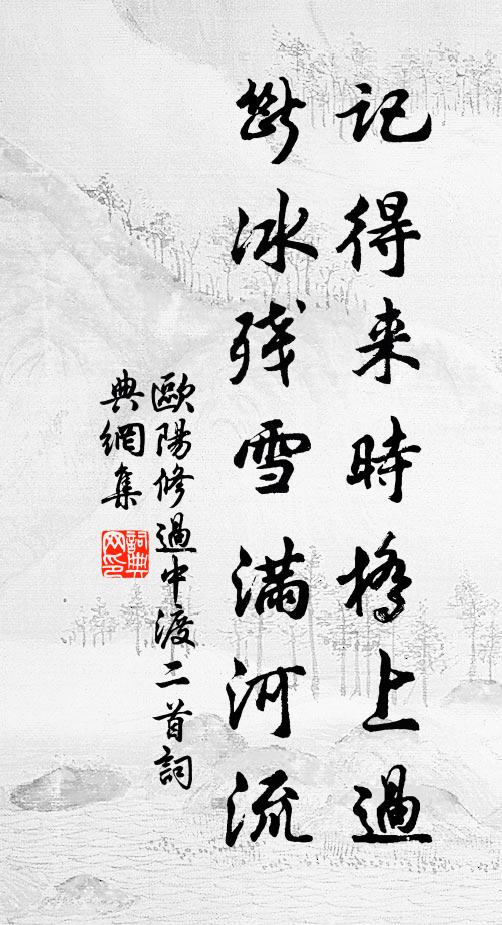 記得来時橋上過
斷冰残雪滿河流
歐陽修過中渡二首詞
典網集
詞典
网印